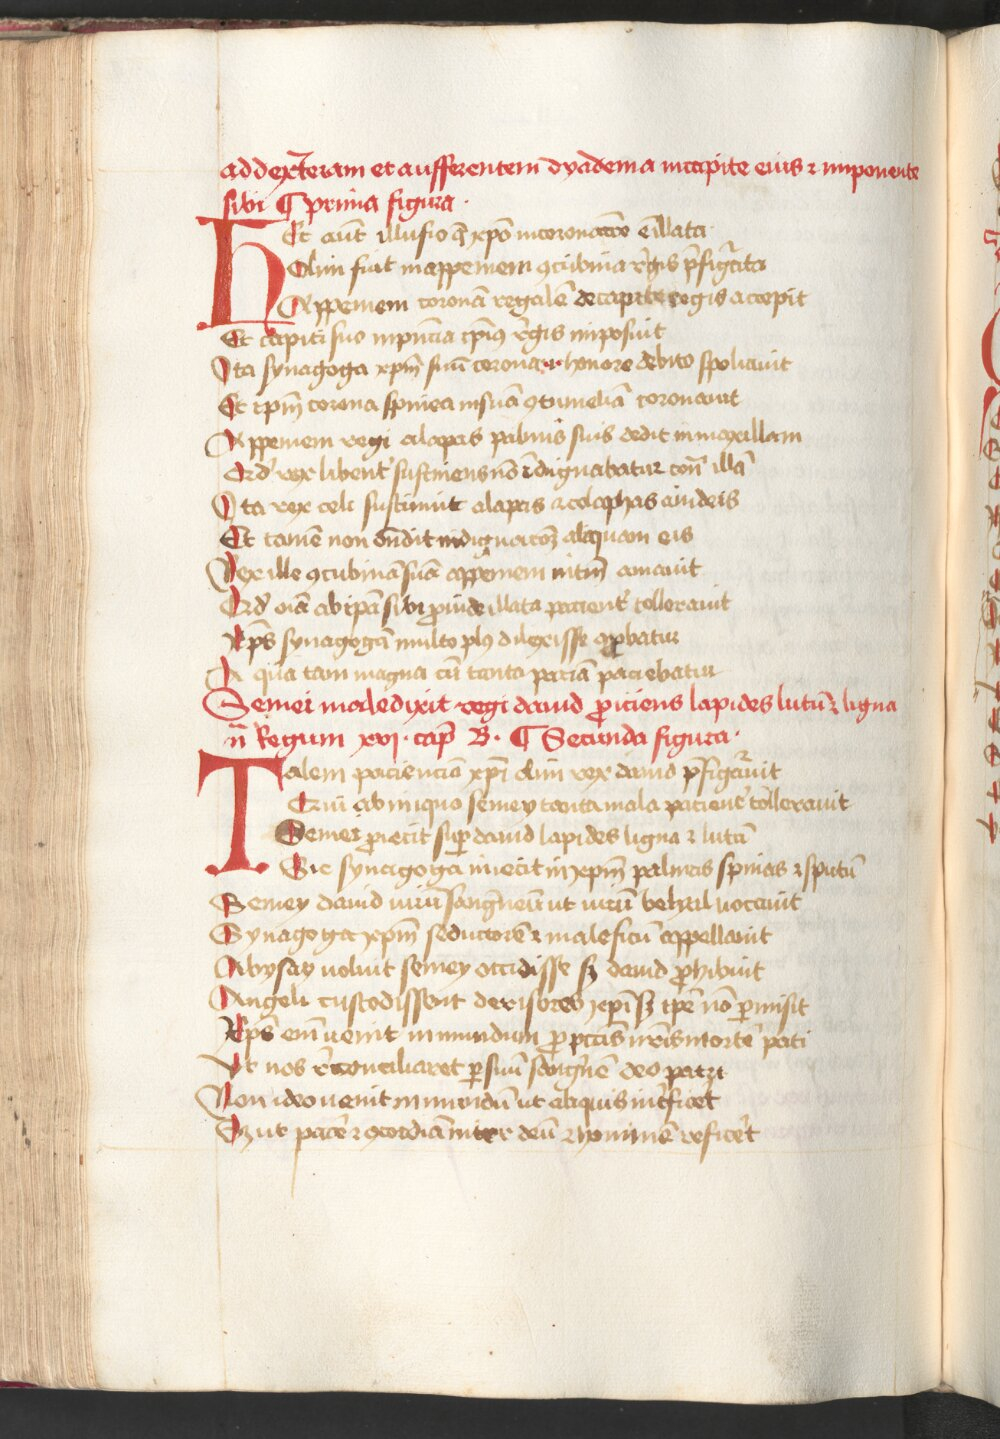 ad dexteram et aufferentem dyadema in capite eius ⁊ imponente
sibi ¶ prima figura ·
Hec aūt illusio q̄ xp̄o in coronacōe ē illata
Olim fuit in appemem ꝯcubina rēgis p̄figurata
Appemem coronā regalē de capite regis accepit
Et capiti suo in p̄ncia ip̄ius rēgis imposuit
Ita synagoga xp̄m̄ suā corona ·i· honore debito spoliauit
Et ip̄m̄ corona spinea in suā ꝯtumeliā coronauit
Appemem regi alapas palmis suis dedit in maxillam
Qd̛ rex libent̛ sustinens nō īdignabatur cont̄ illā
Ita rex celi sustinuit alapas ⁊ colaphas a iudeis
Et tamē non on̄dit indignacōȝ aliquam eis
Rex ille ꝯcubinā suā appemem in tm̄ amauit
Qd̛ oīa ab ip̄a sibi proinde illata pacient̛ tollerauit
Xp̄s synagogā multo plꝰ dilexisse ꝯprobatur
A qua tam magna cū tanta paciā paciebatur
Semei maledixit regi dauid proiciens lapides lutū ⁊ ligna
ij̄ Regum xvj · cap̄ B · ¶ Secunda figura ·
Talem pacienciā xp̄i olim rex dauid p̄figurauit
Qui ab iniquo semey tanta mala pacient̛ tollerauit
Semei proiecit sup̄ dauid lapides ligna ⁊ lutū
Sic synagoga iniecit in xp̄m̄ palmas spinas ⁊ sputū
Semey dauid uirū sangneū ut uirū belyal uocauit
Synagoga xp̄m̄ seductorē ⁊ maleficū appellauit
Abysay uoluit semey occidisse sȝ dauid prohibuit
Angeli custodissent derisores xp̄i sȝ ip̄e nō p̄misit
Xp̄s em̄ uenit in mundum pro pctīs nr̄is mortē pati
Vt nos reconciliaret per suū sangnē deo patri
Non ideo uenit in mundū ut aliquis int̛ficet̛
Sȝ ut pacē ⁊ ꝯcordiā inter deū ⁊ hominē reficet̛